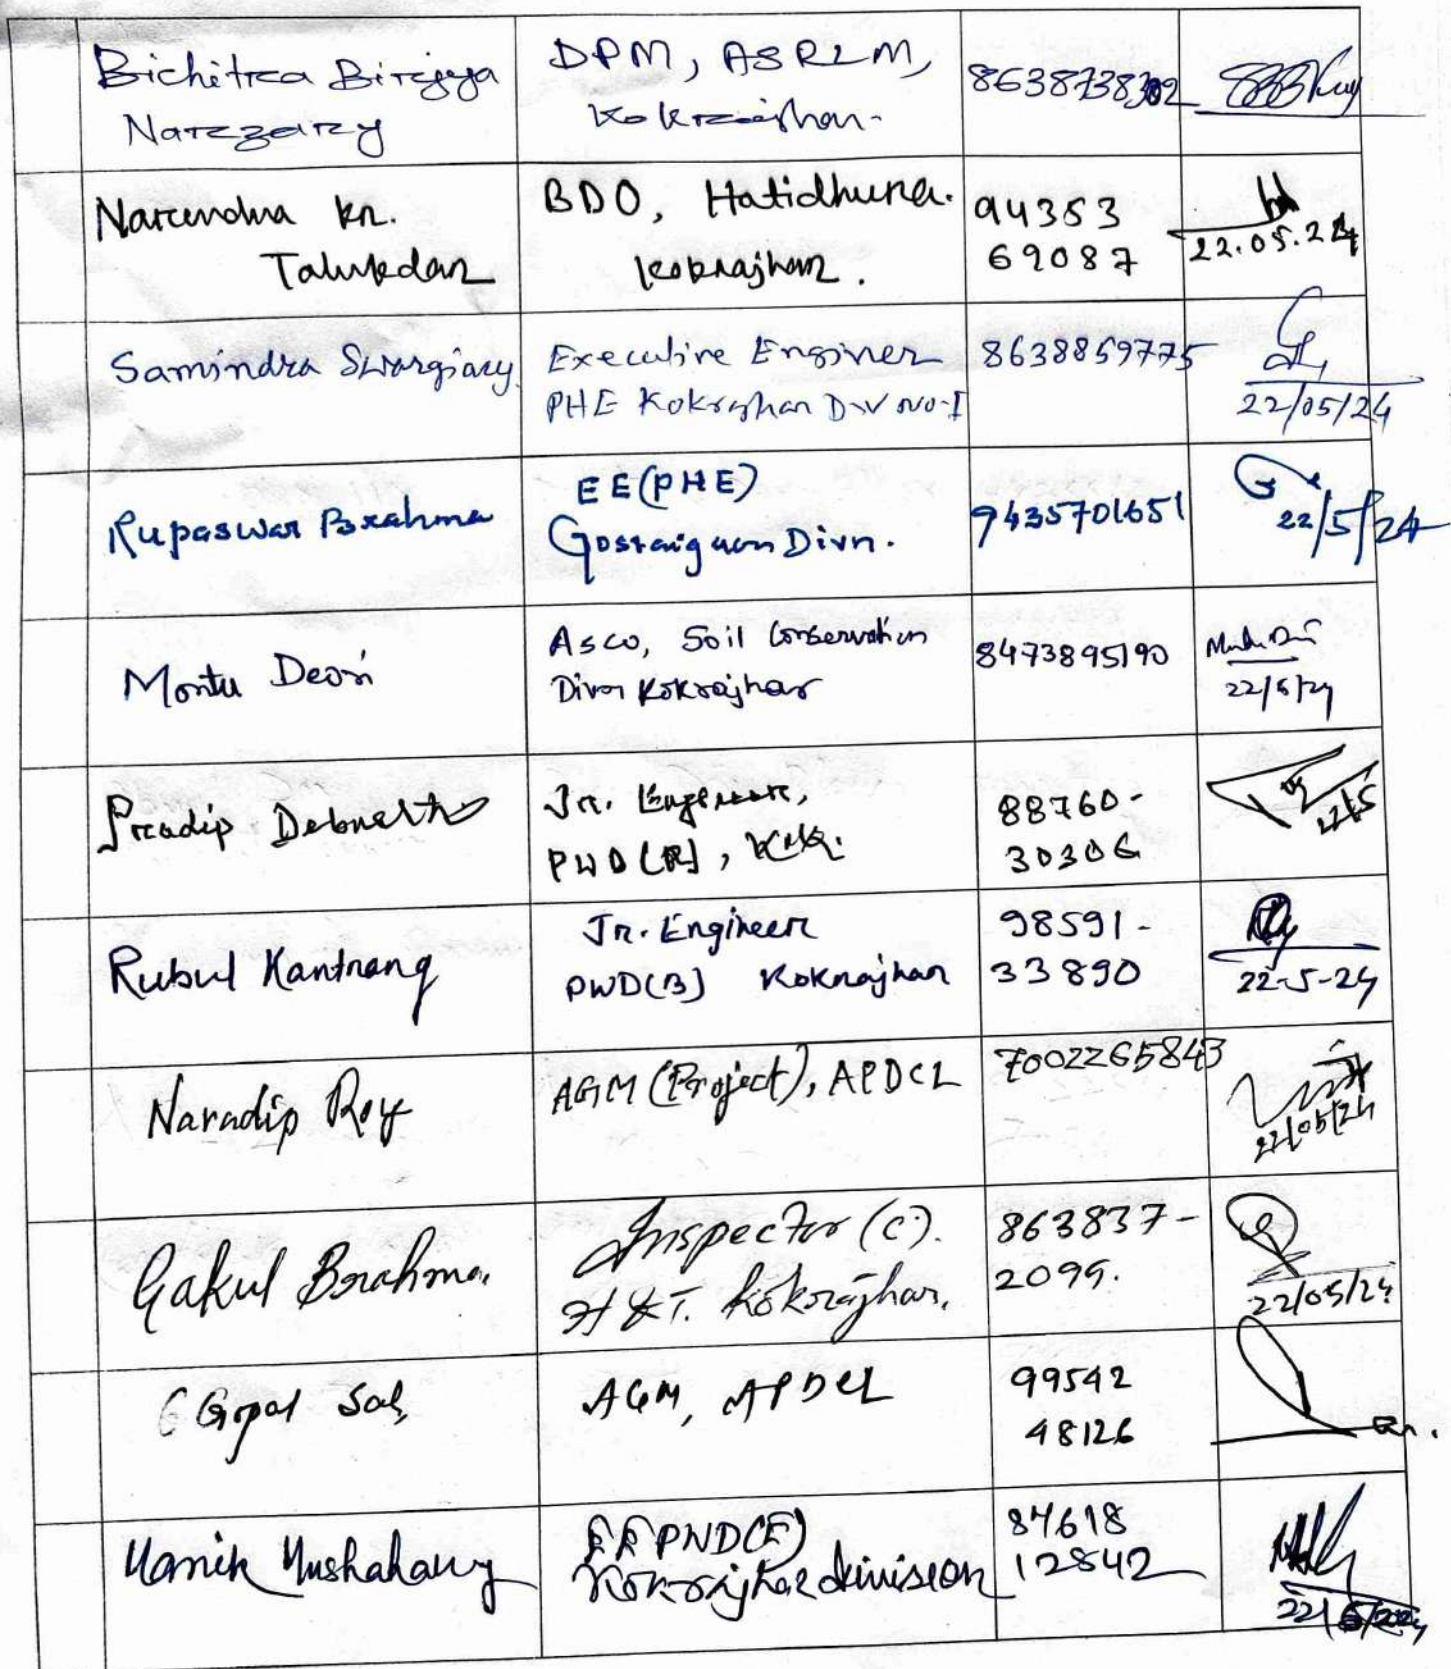 Bichitra Birjya
Narzary
DPM, ASRLM,
Kokrajhar.
Narendra Kr.
Talukdar
BDO, Hatidhura.
Kokrajhar.
94353
69087
22.05.24
Samindra Swargiary
Executive Enginer
PHE Kokrajhar Div No-I
8638859775
22/05/24
Rupaswar Brahma
EE(PHE)
Gossaigaon Divn.
9435701651
22/5/24
Montu Deori
ASCO, Soil Conservation
Divn Kokrajhar
8473895190
22/5/24
Pradip Debnath
Jr. Engineer,
PWD(R), Kok.
88760-
30306
22/5
Rubul Kantnang
Jr. Engineer
PWD(B) Kokrajhar
98591-
33890
22-5-24
Naradip Roy
AGM (Project), APDCL
7002265843
22/05/24
Gakul Brahma.
Inspector (C).
H&T. Kokrajhar.
863837-
2099.
22/05/24
Gopal Sah,
AGM, APDCL
99542
48126
Manik Mushahary
EE PWD(E)
Kokrajhar division
84618
12842